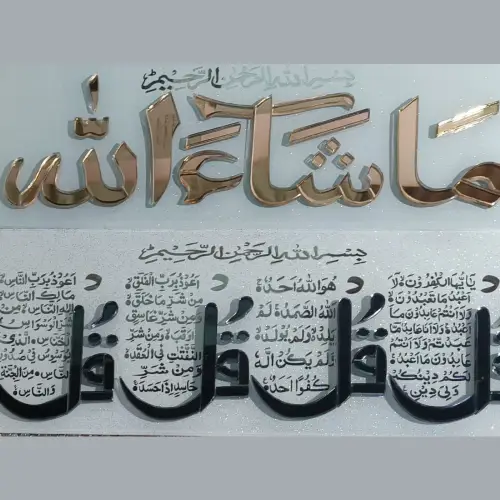 بسم الله الرحمن الرحيم
ما شاء الله
بسم الله الرحمن الرحيم
قل
يايها الكفرون لا
اعبد ما تعبدون
ولا انتم عابدون ما
اعبد ولا انا عابد ما
عبدتم ولا انتم
عابدون ما اعبد
لكم دينكم
ولي دين
قل
هو الله احد
الله الصمد لم
يلد ولم يولد
ولم يكن له
كفوا احد
قل
اعوذ برب الفلق
من شر ما خلق
ومن شر غاسق
اذا وقب ومن شر
النفثت في العقد
ومن شر
حاسد اذا حسد
قل
اعوذ برب الناس
مالك الناس
اله الناس من
شر الوسواس
الخناس الذي
يوسوس في صدور
الناس من الجنة
والناس